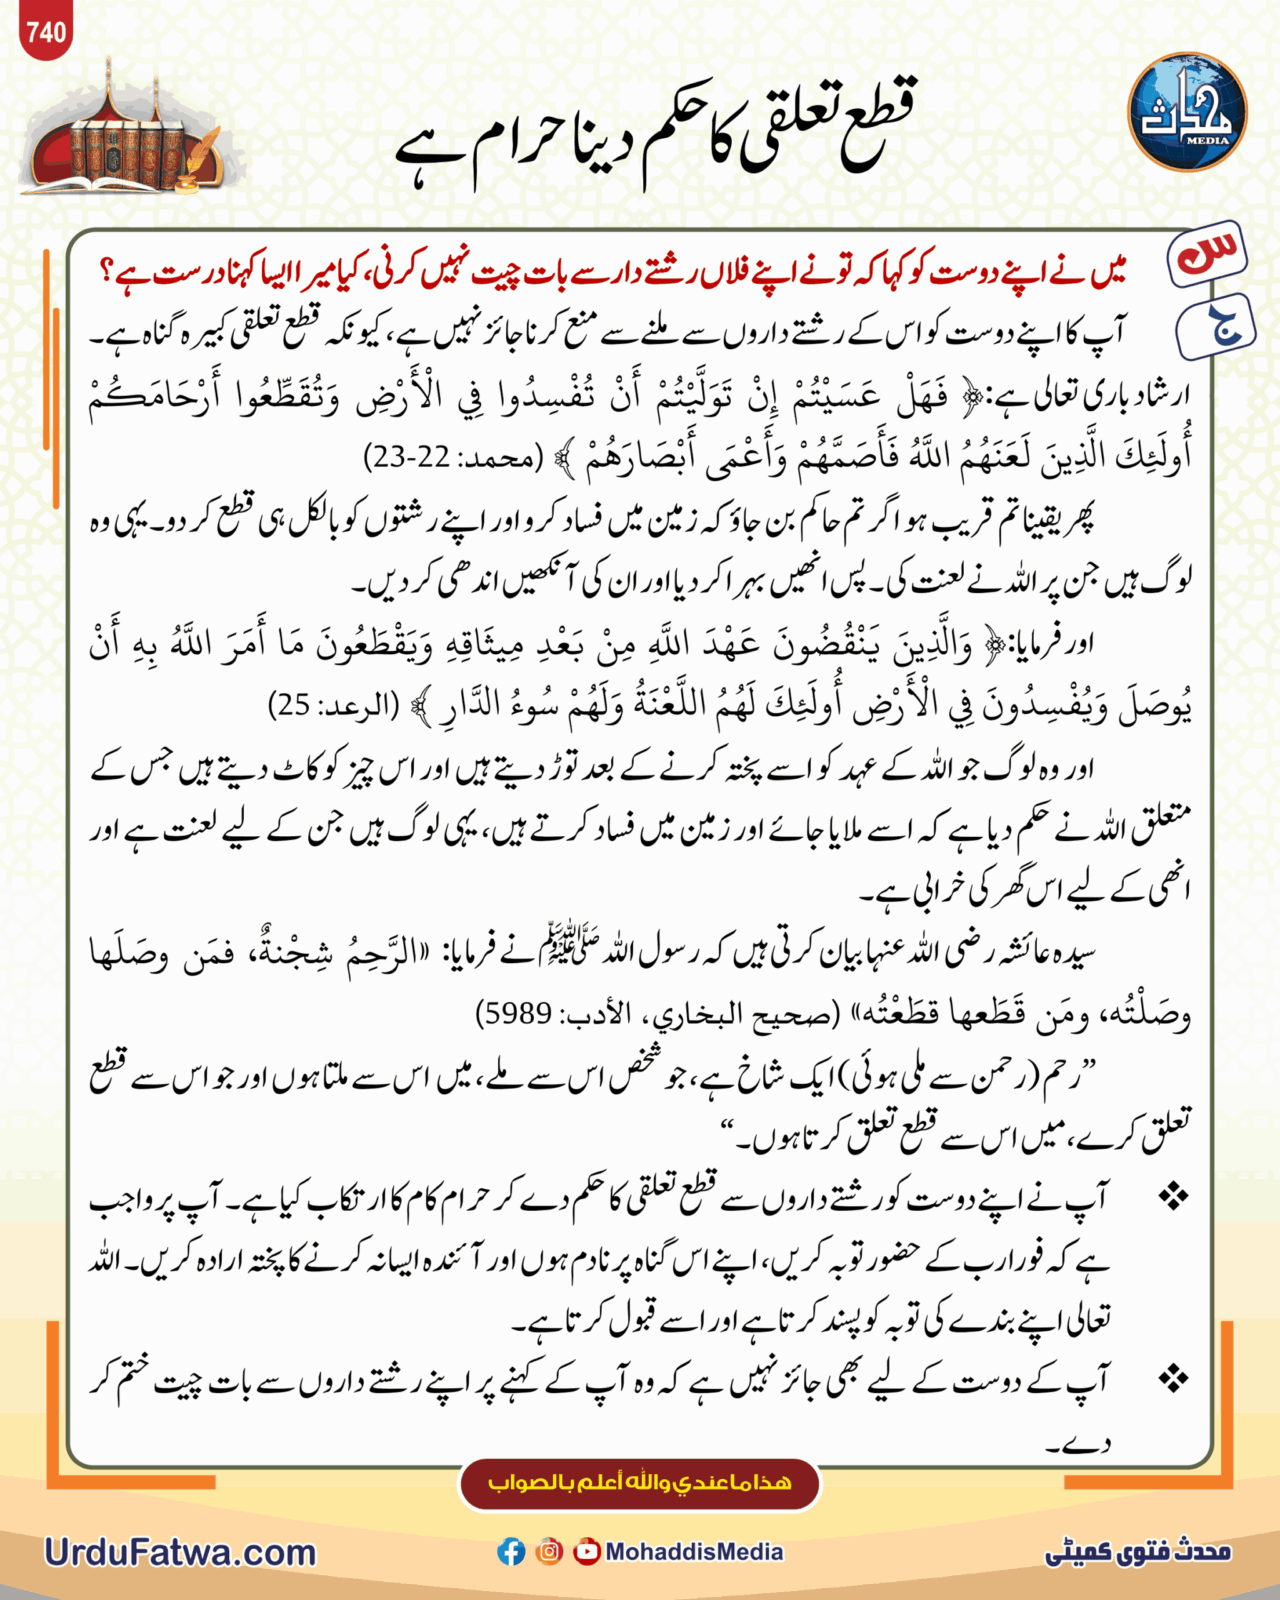 740
محدث
MEDIA
قطع تعلقی کا حکم دینا حرام ہے
س
میں نے اپنے دوست کو کہا کہ تو نے اپنے فلاں رشتے دار سے بات چیت نہیں کرنی، کیا میرا ایسا کہنا درست ہے؟
ج
آپ کا اپنے دوست کو اس کے رشتے داروں سے ملنے سے منع کرنا جائز نہیں ہے، کیونکہ قطع تعلقی کبیرہ گناہ ہے۔
ارشاد باری تعالی ہے: ﴿ فَهَلْ عَسَيْتُمْ إِنْ تَوَلَّيْتُمْ أَنْ تُفْسِدُوا فِي الْأَرْضِ وَتُقَطِّعُوا أَرْحَامَكُمْ
أُولَئِكَ الَّذِينَ لَعَنَهُمُ اللَّهُ فَأَصَمَّهُمْ وَأَعْمَى أَبْصَارَهُمْ ﴾ (محمد: 22-23)
پھر یقینا تم قریب ہو اگر تم حاکم بن جاؤ کہ زمین میں فساد کرو اور اپنے رشتوں کو بالکل ہی قطع کر دو۔ یہی وہ
لوگ ہیں جن پر اللہ نے لعنت کی۔ پس انھیں بہرا کر دیا اور ان کی آنکھیں اندھی کر دیں۔
اور فرمایا: ﴿ وَالَّذِينَ يَنْقُضُونَ عَهْدَ اللَّهِ مِنْ بَعْدِ مِيثَاقِهِ وَيَقْطَعُونَ مَا أَمَرَ اللَّهُ بِهِ أَنْ
يُوصَلَ وَيُفْسِدُونَ فِي الْأَرْضِ أُولَئِكَ لَهُمُ اللَّعْنَةُ وَلَهُمْ سُوءُ الدَّارِ ﴾ (الرعد: 25)
اور وہ لوگ جو اللہ کے عہد کو اسے پختہ کرنے کے بعد توڑ دیتے ہیں اور اس چیز کو کاٹ دیتے ہیں جس کے
متعلق اللہ نے حکم دیا ہے کہ اسے ملایا جائے اور زمین میں فساد کرتے ہیں، یہی لوگ ہیں جن کے لیے لعنت ہے اور
انھی کے لیے اس گھر کی خرابی ہے۔
سیدہ عائشہ رضی اللہ عنہا بیان کرتی ہیں کہ رسول اللہ ﷺ نے فرمایا: «الرَّحِمُ شِجْنةٌ، فمَن وصَلَها
وصَلْتُه، ومَن قَطَعها قطَعْتُه» (صحيح البخاري، الأدب: 5989)
”رحم (رحمن سے ملی ہوئی) ایک شاخ ہے، جو شخص اس سے ملے، میں اس سے ملتا ہوں اور جو اس سے قطع
تعلق کرے، میں اس سے قطع تعلق کرتا ہوں۔“
❖ آپ نے اپنے دوست کو رشتے داروں سے قطع تعلقی کا حکم دے کر حرام کام کا ارتکاب کیا ہے۔ آپ پر واجب
ہے کہ فورا رب کے حضور توبہ کریں، اپنے اس گناہ پر نادم ہوں اور آئندہ ایسا نہ کرنے کا پختہ ارادہ کریں۔ اللہ
تعالی اپنے بندے کی توبہ کو پسند کرتا ہے اور اسے قبول کرتا ہے۔
❖ آپ کے دوست کے لیے بھی جائز نہیں ہے کہ وہ آپ کے کہنے پر اپنے رشتے داروں سے بات چیت ختم کر
دے۔
هذا ما عندي والله أعلم بالصواب
UrduFatwa.com
MohaddisMedia
محدث فتوی کمیٹی